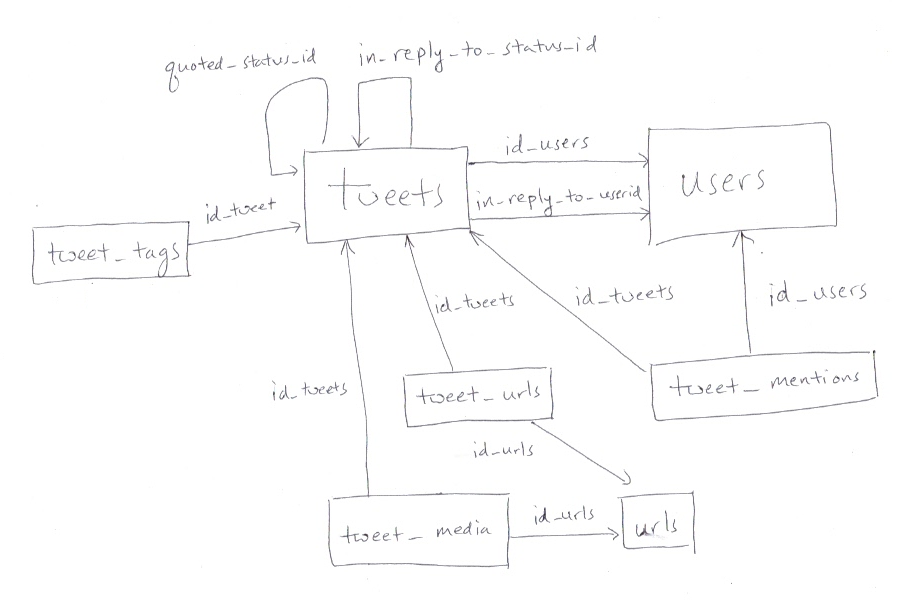 quoted_status_id
in_reply_to_status_id
tweets
id_users
in_reply_to_userid
users
id_tweet
tweet_tags
id_tweets
id_tweets
id_users
id_tweets
tweet_urls
tweet_mentions
id_urls
tweet_media
id_urls
urls